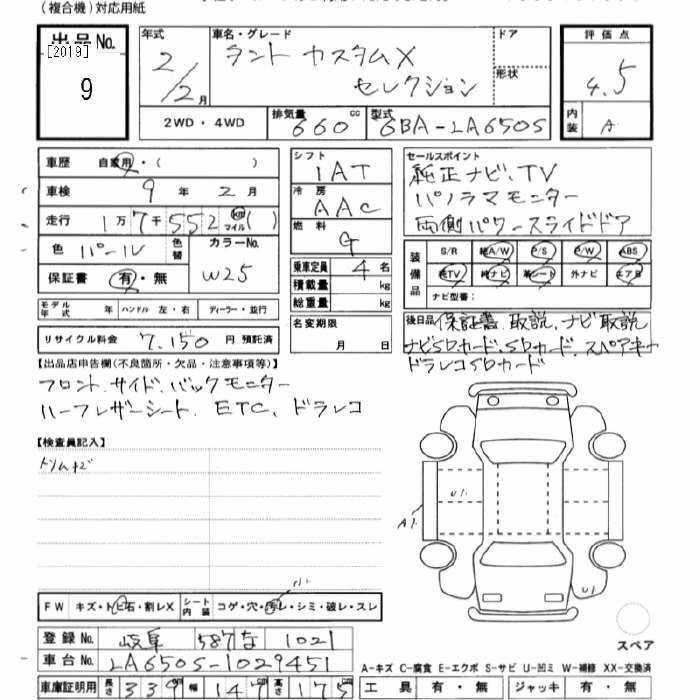 (複合機)対応用紙
出品No. [2019] 9
年式 2/2月 車名・グレード タント カスタムX セレクション ドア 形状 評価点 4.5
2WD・4WD 排気量 660cc 型式 6BA-LA650S 内装 A
車歴 自家用・( )
車検 9年2月
走行 1万7千552 km マイル ( )
色 パール 色替 カラーNo. W25
保証書 有・無
モデル年式 年 ハンドル 左・右 ディーラー・並行
リサイクル料金 7,150円 預託済
シフト IAT
冷房 AAC
燃料 G
乗車定員 4名
積載量 kg
総重量 kg
名変期限 月 日
セールスポイント
純正ナビ、TV
パノラマモニター
両側パワースライドドア
装備品 S/R 純A/W P/S P/W ABS
純TV 純ナビ 革シート 外ナビ エアB
ナビ型番:
後日品 保証書、取説、ナビ取説
ナビSDカード、SDカード、スペアキー
ドラレコSDカード
【出品店申告欄(不良箇所・欠品・注意事項等)】
フロント、サイド、バックモニター
ハーフレザーシート、ETC、ドラレコ
【検査員記入】
ドリムキズ
A1
U1
U1
FW キズ・トビ石・割レX シート内装 コゲ・穴・汚レ・シミ・破レ・スレ
スペア
登録No. 岐阜 587 な 1021
車台No. LA650S-1029451
A-キズ C-腐食 E-エクボ S-サビ U-凹ミ W-補修 XX-交換済
車庫証明用 長さ 339cm 幅 147cm 高さ 175cm 工具 有・無 ジャッキ 有・無